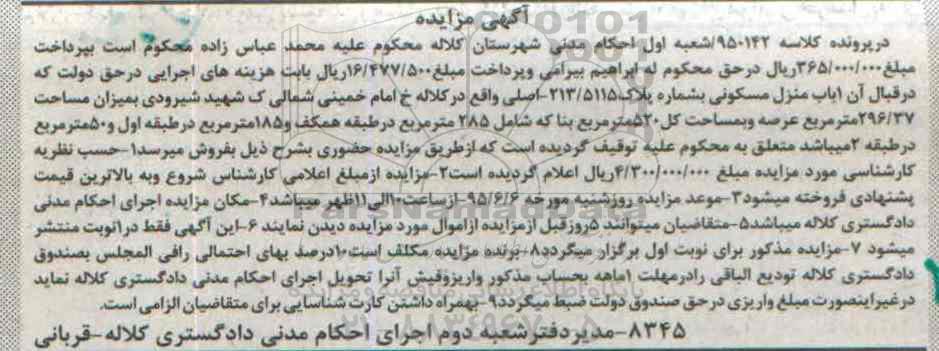 آگهی مزایده
درپرونده کلاسه ۹۵۰۱۴۲/شعبه اول احکام مدنی شهرستان کلاله محکوم علیه محمد عباس زاده محکوم است بپرداخت
مبلغ۳۶۵/۰۰۰/۰۰۰ریال درحق محکوم له ابراهیم بیرامی وپرداخت مبلغ۱۶/۴۷۷/۵۰۰ریال بابت هزینه های اجرایی درحق دولت که
درقبال آن ۱باب منزل مسکونی بشماره پلاک۲۱۳/۵۱۱۵-اصلی واقع درکلاله خ امام خمینی شمالی ک شهید شیرودی بمیزان مساحت
۲۹۶/۳۷مترمربع عرصه وبمساحت کل۵۲۰مترمربع بنا که شامل ۲۸۵ مترمربع درطبقه همکف و۱۸۵مترمربع درطبقه اول و۵۰مترمربع
درطبقه ۲میباشد متعلق به محکوم علیه توقیف گردیده است که ازطریق مزایده حضوری بشرح ذیل بفروش میرسد۱-حسب نظریه
کارشناسی مورد مزایده مبلغ ۴/۳۰۰/۰۰۰/۰۰۰ریال اعلام گردیده است۲-مزایده ازمبلغ اعلامی کارشناس شروع وبه بالاترین قیمت
پشنهادی فروخته میشود۳-موعد مزایده روزشنبه مورخه ۹۵/۶/۶-ازساعت۱۰الی۱۱ظهر میباشد۴-مکان مزایده اجرای احکام مدنی
دادگستری کلاله میباشد۵-متقاضیان میتوانند ۵روزقبل ازمزایده ازاموال مورد مزایده دیدن نمایند ۶-این آگهی فقط در۱نوبت منتشر
میشود ۷-مزایده مذکور برای نوبت اول برگزار میگردد۸-برنده مزایده مکلف است۱۰درصد بهای احتمالی رافی المجلس بصندوق
دادگستری کلاله تودیع الباقی رادرمهلت ۱ماهه بحساب مذکور واریزوفیش آنرا تحویل اجرای احکام مدنی دادگستری کلاله نماید
درغیراینصورت مبلغ واریزی درحق صندوق دولت ضبط میگردد۹- بهمراه داشتن کارت شناسایی برای متقاضیان الزامی است.
۸۳۴۵-مدیردفترشعبه دوم اجرای احکام مدنی دادگستری کلاله-قربانی